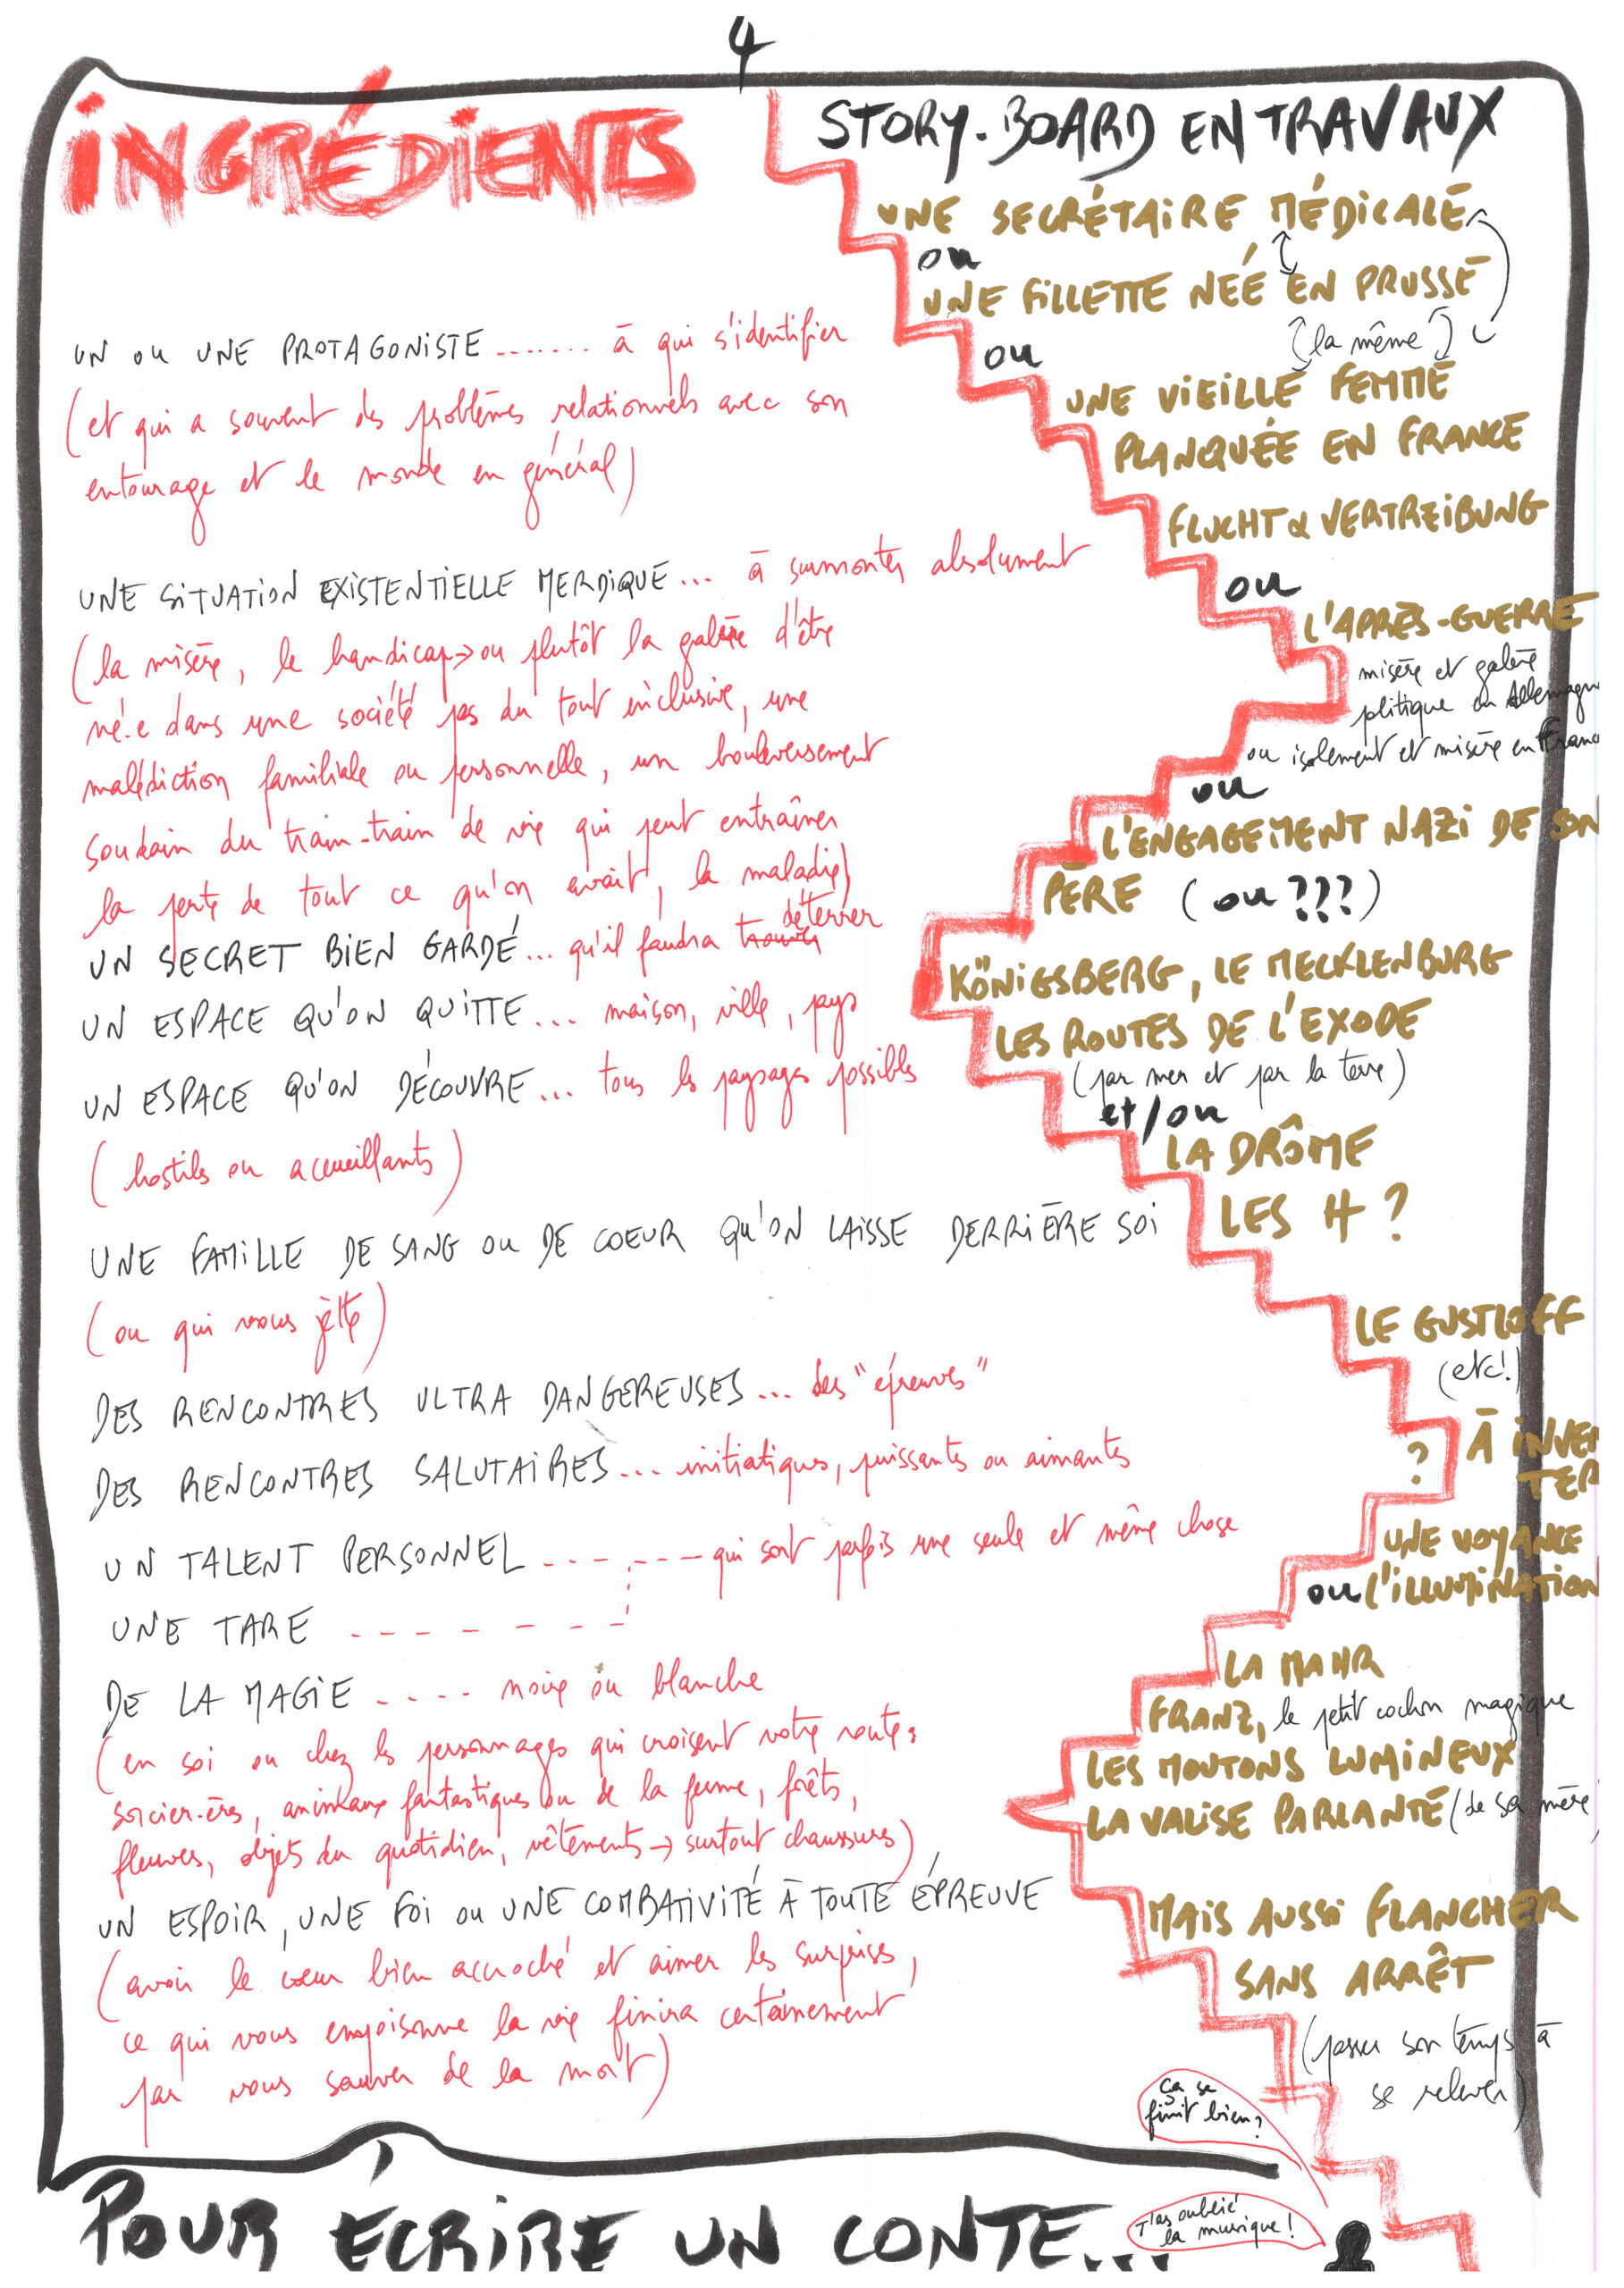 4
INGRÉDIENTS
UN OU UNE PROTAGONISTE ....... à qui s'identifier
(et qui a souvent des problèmes relationnels avec son
entourage et le monde en général)
UNE SITUATION EXISTENTIELLE MERDIQUE... à surmonter absolument
(la misère, le handicap → ou plutôt la galère d'être
né-e dans une société pas du tout inclusive, une
malédiction familiale ou personnelle, un bouleversement
soudain du train-train de vie qui peut entraîner
la perte de tout ce qu'on avait, la maladie)
UN SECRET BIEN GARDÉ... qu'il faudra trouver déterrer
UN ESPACE QU'ON QUITTE... maison, ville, pays
UN ESPACE QU'ON DÉCOUVRE... tous les paysages possibles
(hostiles ou accueillants)
UNE FAMILLE DE SANG OU DE COEUR QU'ON LAISSE DERRIÈRE SOI
(ou qui vous jette)
DES RENCONTRES ULTRA DANGEREUSES... des "épreuves"
DES RENCONTRES SALUTAIRES... initiatiques, puissantes ou aimantes
UN TALENT PERSONNEL --- --- qui sont parfois une seule et même chose
UNE TARE - - - - - - -
DE LA MAGIE - - - - noire ou blanche
(en soi ou chez les personnages qui croisent votre route :
sorcier-ères, animaux fantastiques ou de la ferme, forêts,
fleuves, objets du quotidien, vêtements → surtout chaussures)
UN ESPOIR, UNE FOI OU UNE COMBATIVITÉ À TOUTE ÉPREUVE
(avoir le coeur bien accroché et aimer les surprises,
ce qui vous empoisonne la vie finira certainement
par vous sauver de la mort)
POUR ÉCRIRE UN CONTE...
STORY-BOARD EN TRAVAUX
UNE SECRÉTAIRE MÉDICALE
ou
UNE FILLETTE NÉE EN PRUSSE
(la même)
ou
UNE VIEILLE FEMME
PLANQUÉE EN FRANCE
FLUCHT & VERTREIBUNG
ou
L'APRÈS-GUERRE
misère et galère
politique en Allemagn
ou isolement et misère en Franc
ou
L'ENGAGEMENT NAZI DE SON
PÈRE (ou ???)
KÖNIGSBERG, LE MECKLENBURG
LES ROUTES DE L'EXODE
(par mer et par la terre)
et/ou
LA DRÔME
LES H ?
LE GUSTLOFF
(etc!)
? À INVEN
TER
UNE VOYANCE
ou L'ILLUMINATION
LA MAHR
FRANZ, le petit cochon magique
LES MOUTONS LUMINEUX
LA VALISE PARLANTE (de sa mère)
MAIS AUSSI FLANCHER
SANS ARRÊT
(passer son temps à
se relever)
Ça se
finit bien ?
T'as oublié
la musique !